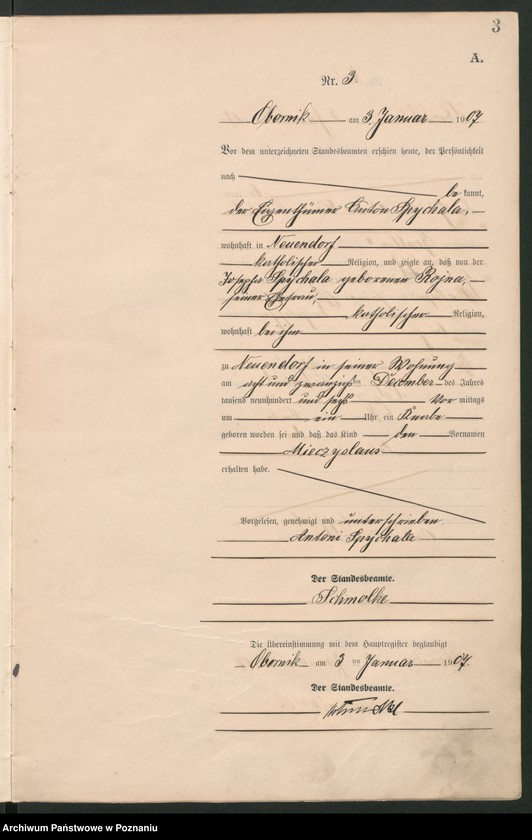 3
A.
Nr. 3
Obornik am 3 Januar 1907
Vor dem unterzeichneten Standesbeamten erschien heute, der Persönlichkeit
nach
be kannt,
der Eigenthümer Anton Spychala,
wohnhaft in Neuendorf
katholischer Religion, und zeigte an, daß von der
Josepha Spychala geborenen Rojna,
seiner Ehefrau,
katholischer Religion,
wohnhaft bei ihm
zu Neuendorf in seiner Wohnung
am acht und zwanzigsten December des Jahres
tausend neunhundert und sechs Vor mittags
um ein Uhr ein Knabe
geboren worden sei und daß das Kind den Vornamen
Mieczyslaus
erhalten habe.
Vorgelesen, genehmigt und unterschrieben
Antoni Spychala
Der Standesbeamte.
Schmolke
Die Übereinstimmung mit dem Hauptregister beglaubigt
Obornik am 3 ten Januar 1907.
Der Standesbeamte.
Archiwum Państwowe w Poznaniu